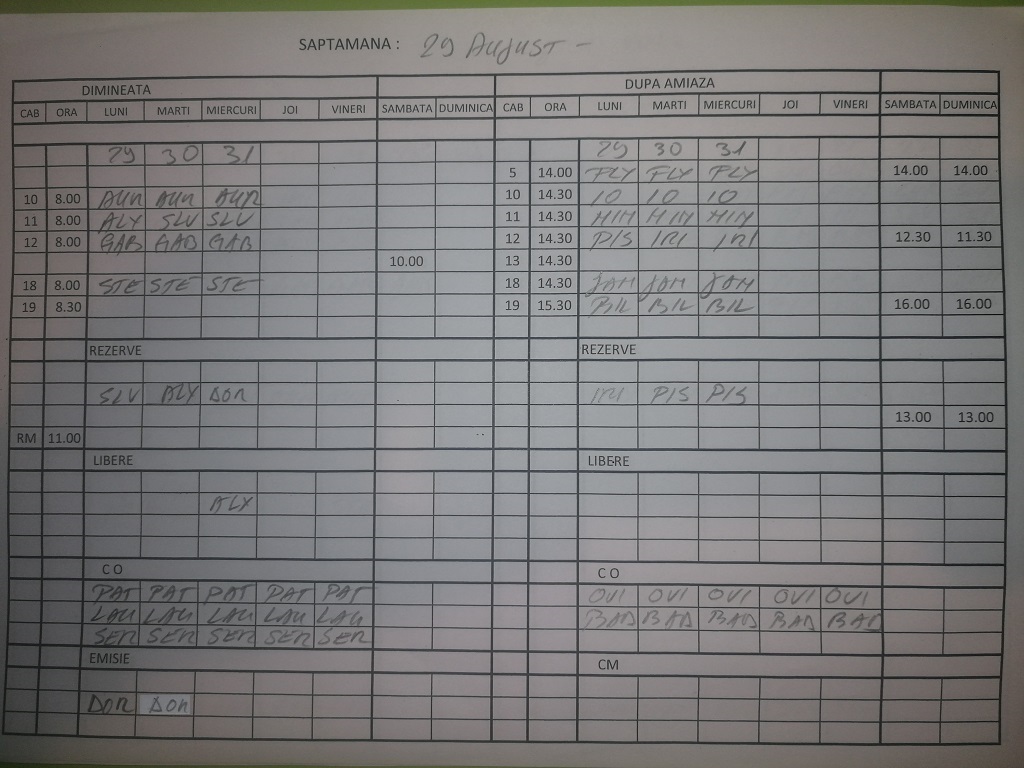 SAPTAMANA : 29 AUGUST -
DIMINEATA DUPA AMIAZA
CAB ORA LUNI MARTI MIERCURI JOI VINERI SAMBATA DUMINICA CAB ORA LUNI MARTI MIERCURI JOI VINERI SAMBATA DUMINICA
29 30 31 29 30 31
5 14.00 FLY FLY FLY 14.00 14.00
10 8.00 AUR AUR AUR 10 14.30 IO IO IO
11 8.00 ALY SLV SLV 11 14.30 MIM MIM MIM
12 8.00 GAB GAB GAB 12 14.30 PIS IRI IRI 12.30 11.30
10.00 13 14.30
18 8.00 STE STE STE 18 14.30 JAM JAM JAM
19 8.30 19 15.30 BIL BIL BIL 16.00 16.00
REZERVE REZERVE
SLV ALY DOR IRI PIS PIS
13.00 13.00
RM 11.00
LIBERE LIBERE
ALY
C O C O
PAT PAT PAT PAT PAT OVI OVI OVI OVI OVI
LAU LAU LAU LAU LAU BAD BAD BAD BAD BAD
SER SER SER SER SER
EMISIE CM
DOR DOR